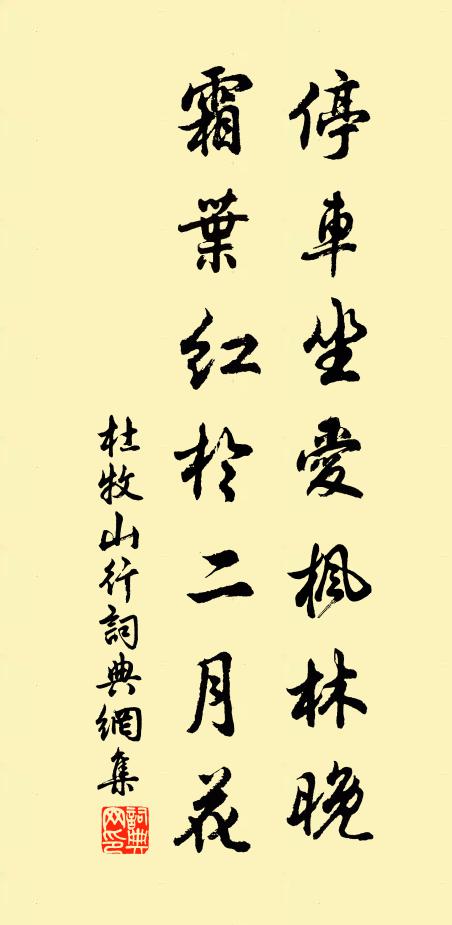 停車坐愛楓林晚
霜葉紅於二月花
杜牧山行詞典網集
詞典網印